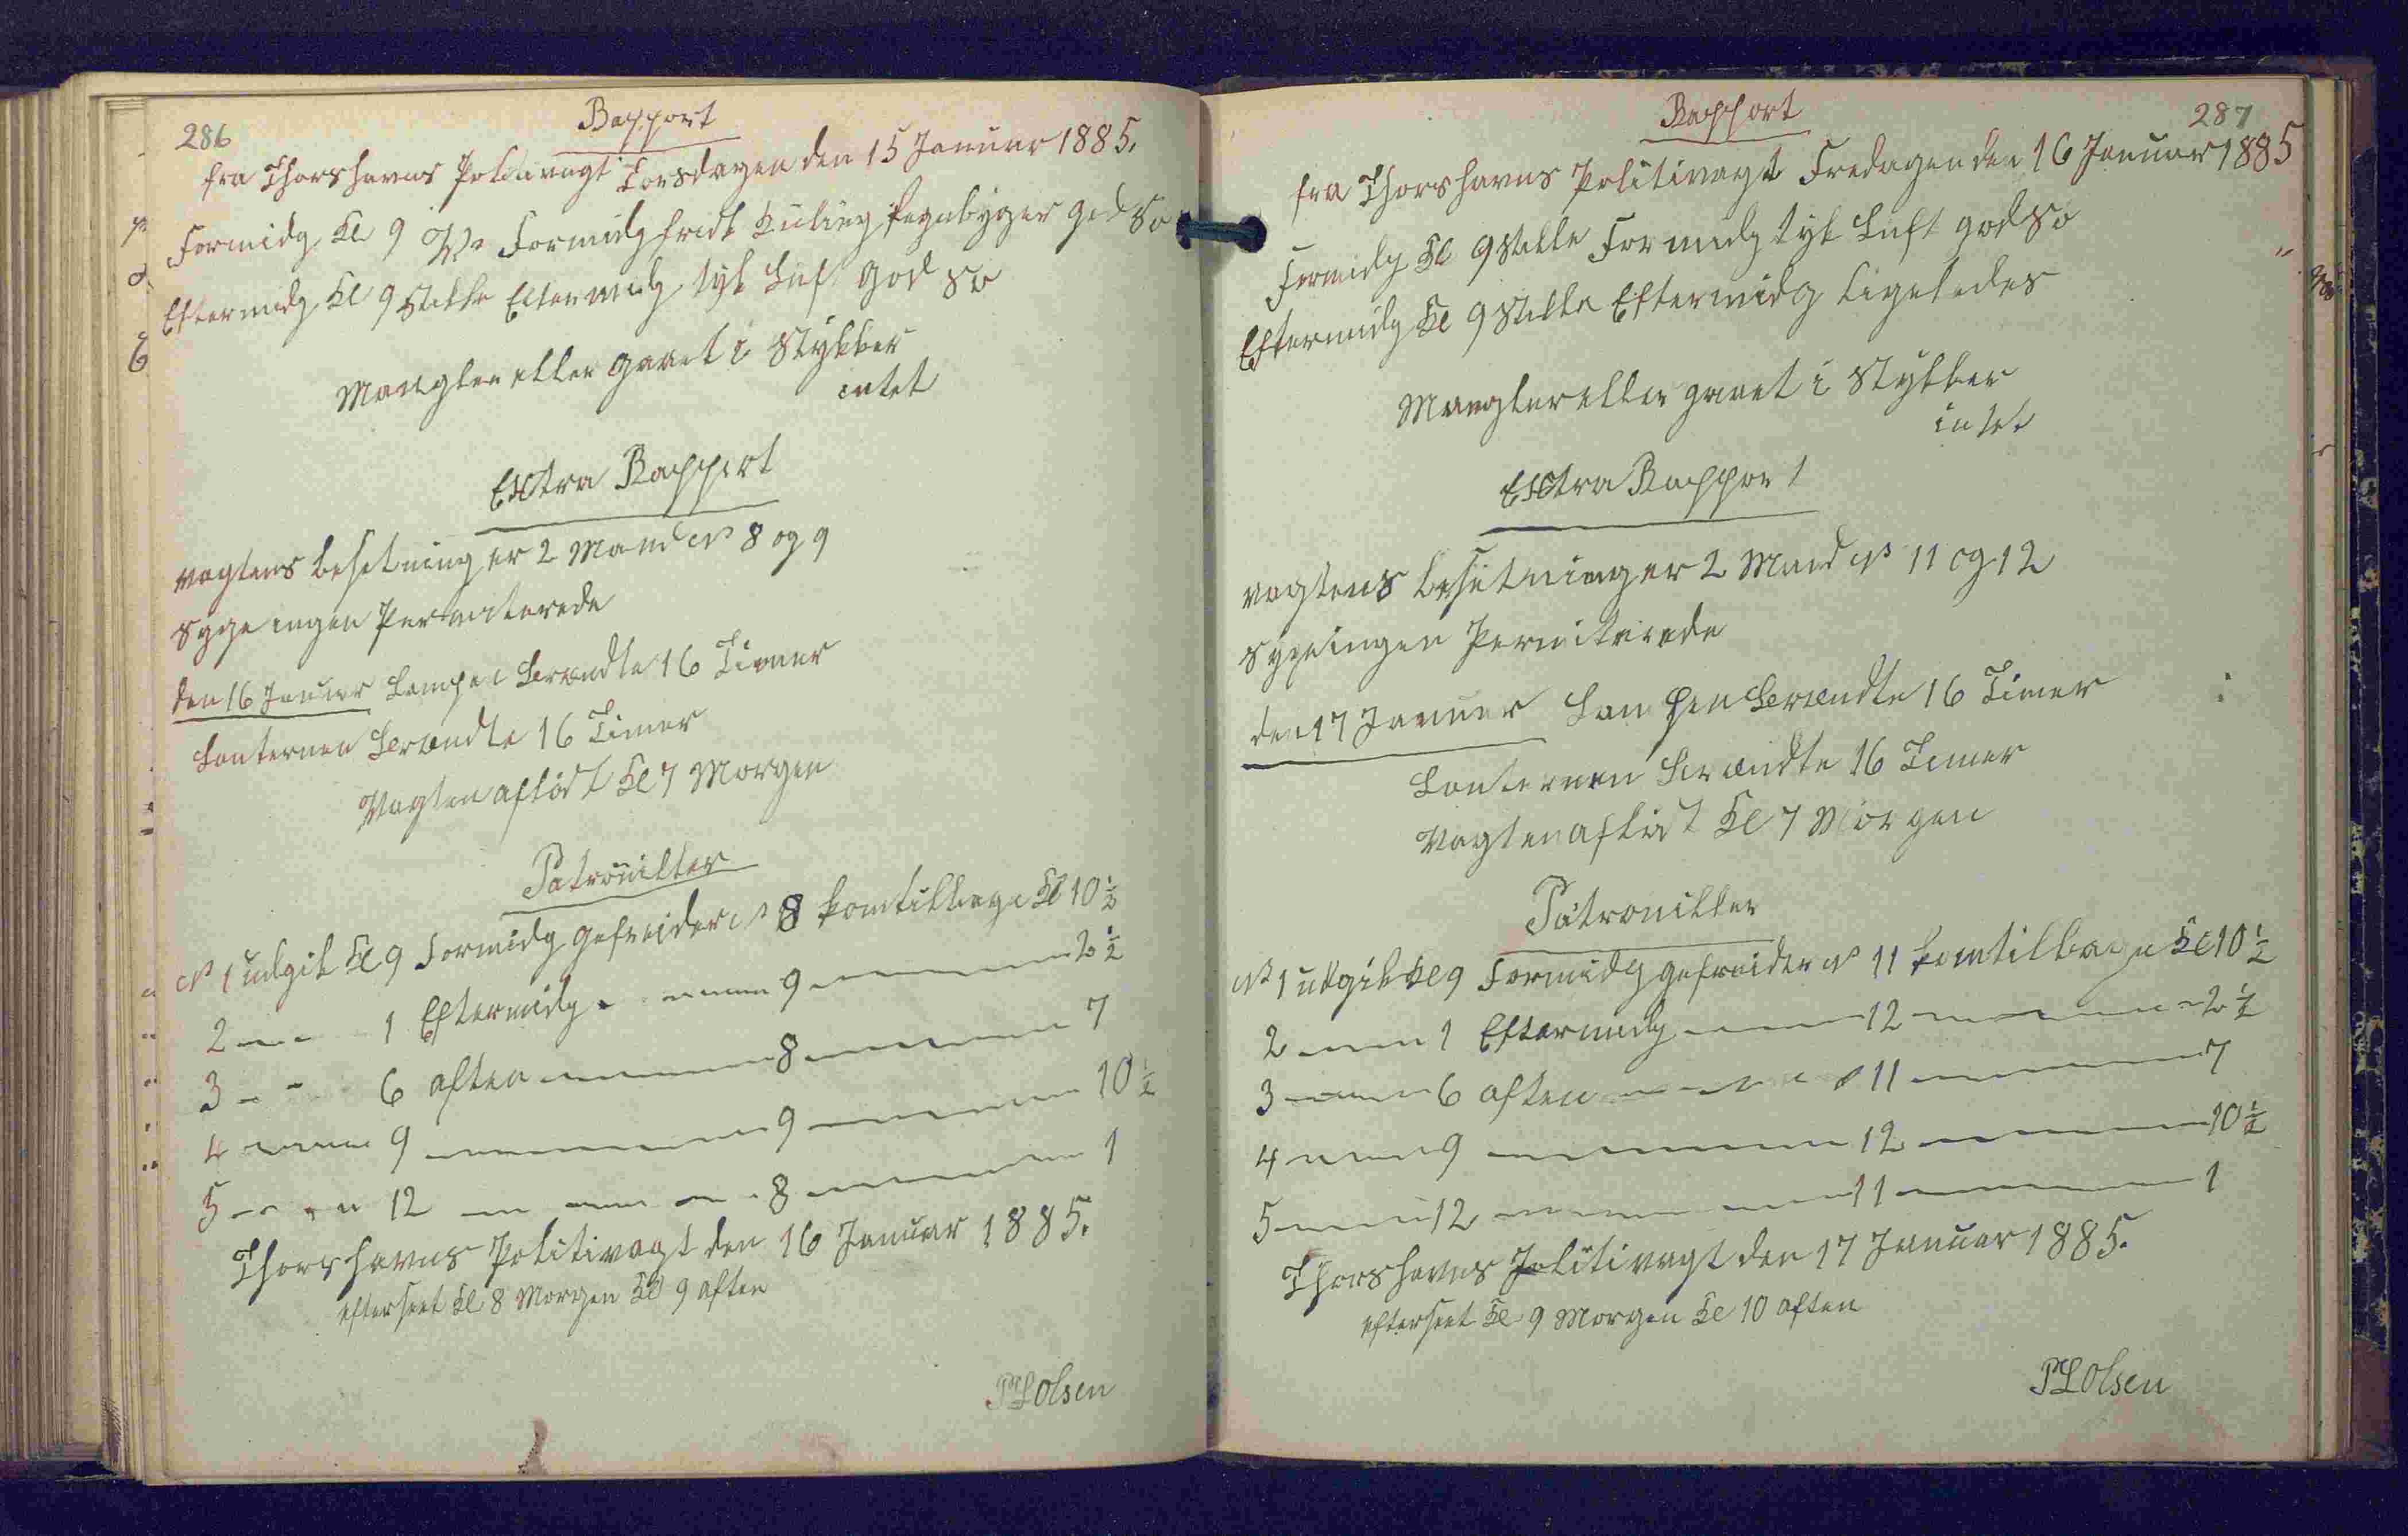 286
Rapport
fra Thorshavns Politivagt Torsdagen den 15 Januar 1885.
Formidg Kl 9 Formidg frisk Kuling Regnbyger god So
Eftermidg Kl 9 Stille Eftermidg tyk Luft god So
Mangler eller gaaet i Stykker
intet
Extra Rapport
vagtens besetning er 2 Mand No 8 og 9
syge ingen Permiterede
den 16 Januar Lampen Brændte 16 Timer
Lanternen Brændte 16 Timer
Vagten afløst Kl 7 Morgen
Patrouiller
No 1 udgik Kl 9 Formidg gefreider No 8 kom tilbage Kl 10 ½
2 — — 1 Eftermidg — — 9 — — 2 ½
3 — — 6 aften — — 8 — — 7
4 — — 9 — — 9 — — 10 ½
5 — — 12 — — 8 — — 1
Thorshavns Politivagt den 16 Januar 1885.
efterseet Kl 8 Morgen Kl 9 aften
PLOlsen
287
Rapport
fra Thorshavns Politivagt Fredagen den 16 Januar 1885
Formidg Kl 9 Stille Formidg tyk Luft god So
Eftermidg Kl 9 Stille Eftermidg Ligeledes
Mangler eller gaaet i Stykker
intet
Extra Rapport
vagtens besetning er 2 Mand No 11 og 12
syge ingen Permiterede
den 17 Januar Lampen Brændte 16 Timer
Lanternen Brændte 16 Timer
Vagten afløst Kl 7 Morgen
Patrouiller
No 1 udgik Kl 9 Formidg gefreider No 11 kom tilbage Kl 10 ½
2 — — 1 Eftermidg — — 12 — — 2 ½
3 — — 6 aften — — 11 — — 7
4 — — 9 — — 12 — — 10 ½
5 — — 12 — — 11 — — 1
Thorshavns Politivagt den 17 Januar 1885.
efterseet Kl 9 Morgen Kl 10 aften
PLOlsen